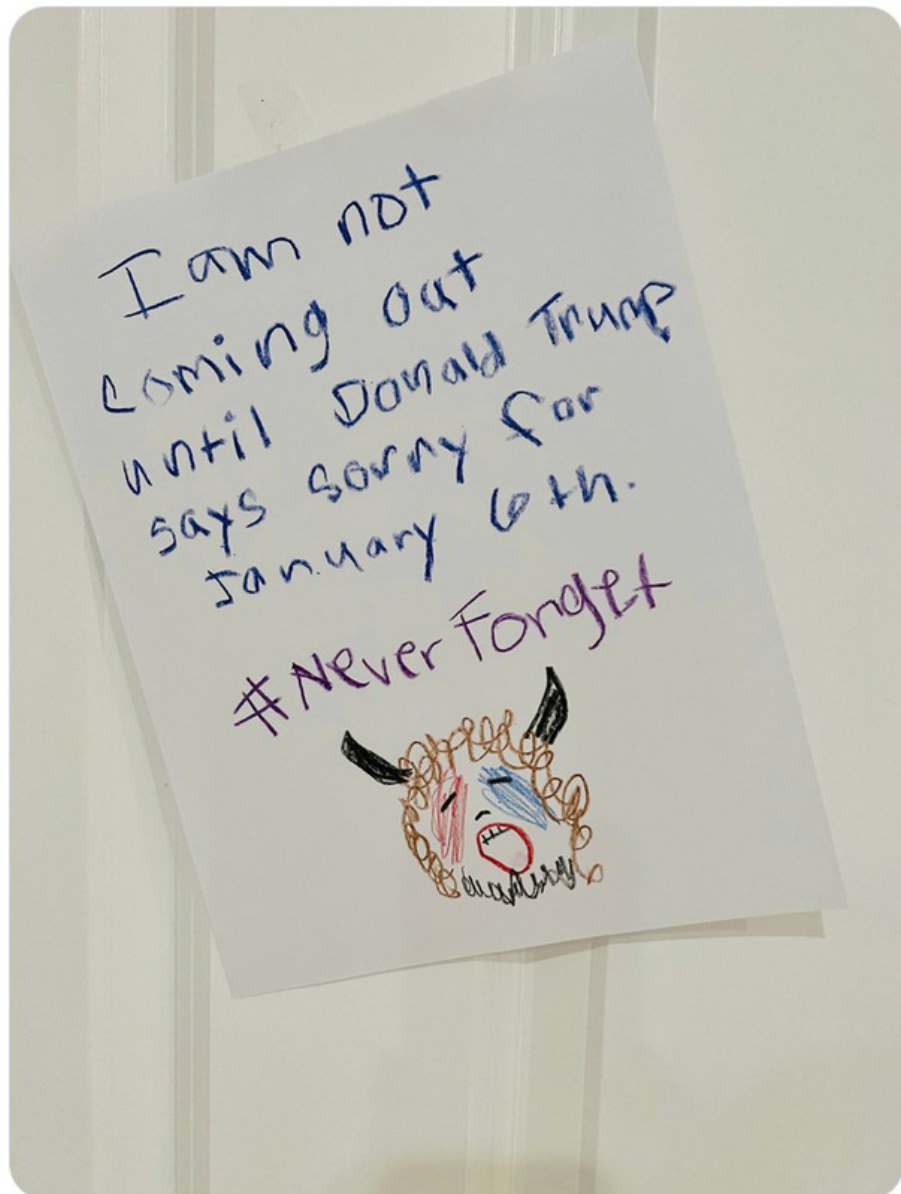 I am not
coming out
until Donald Trump
says sorry for
January 6th.
#NeverForget